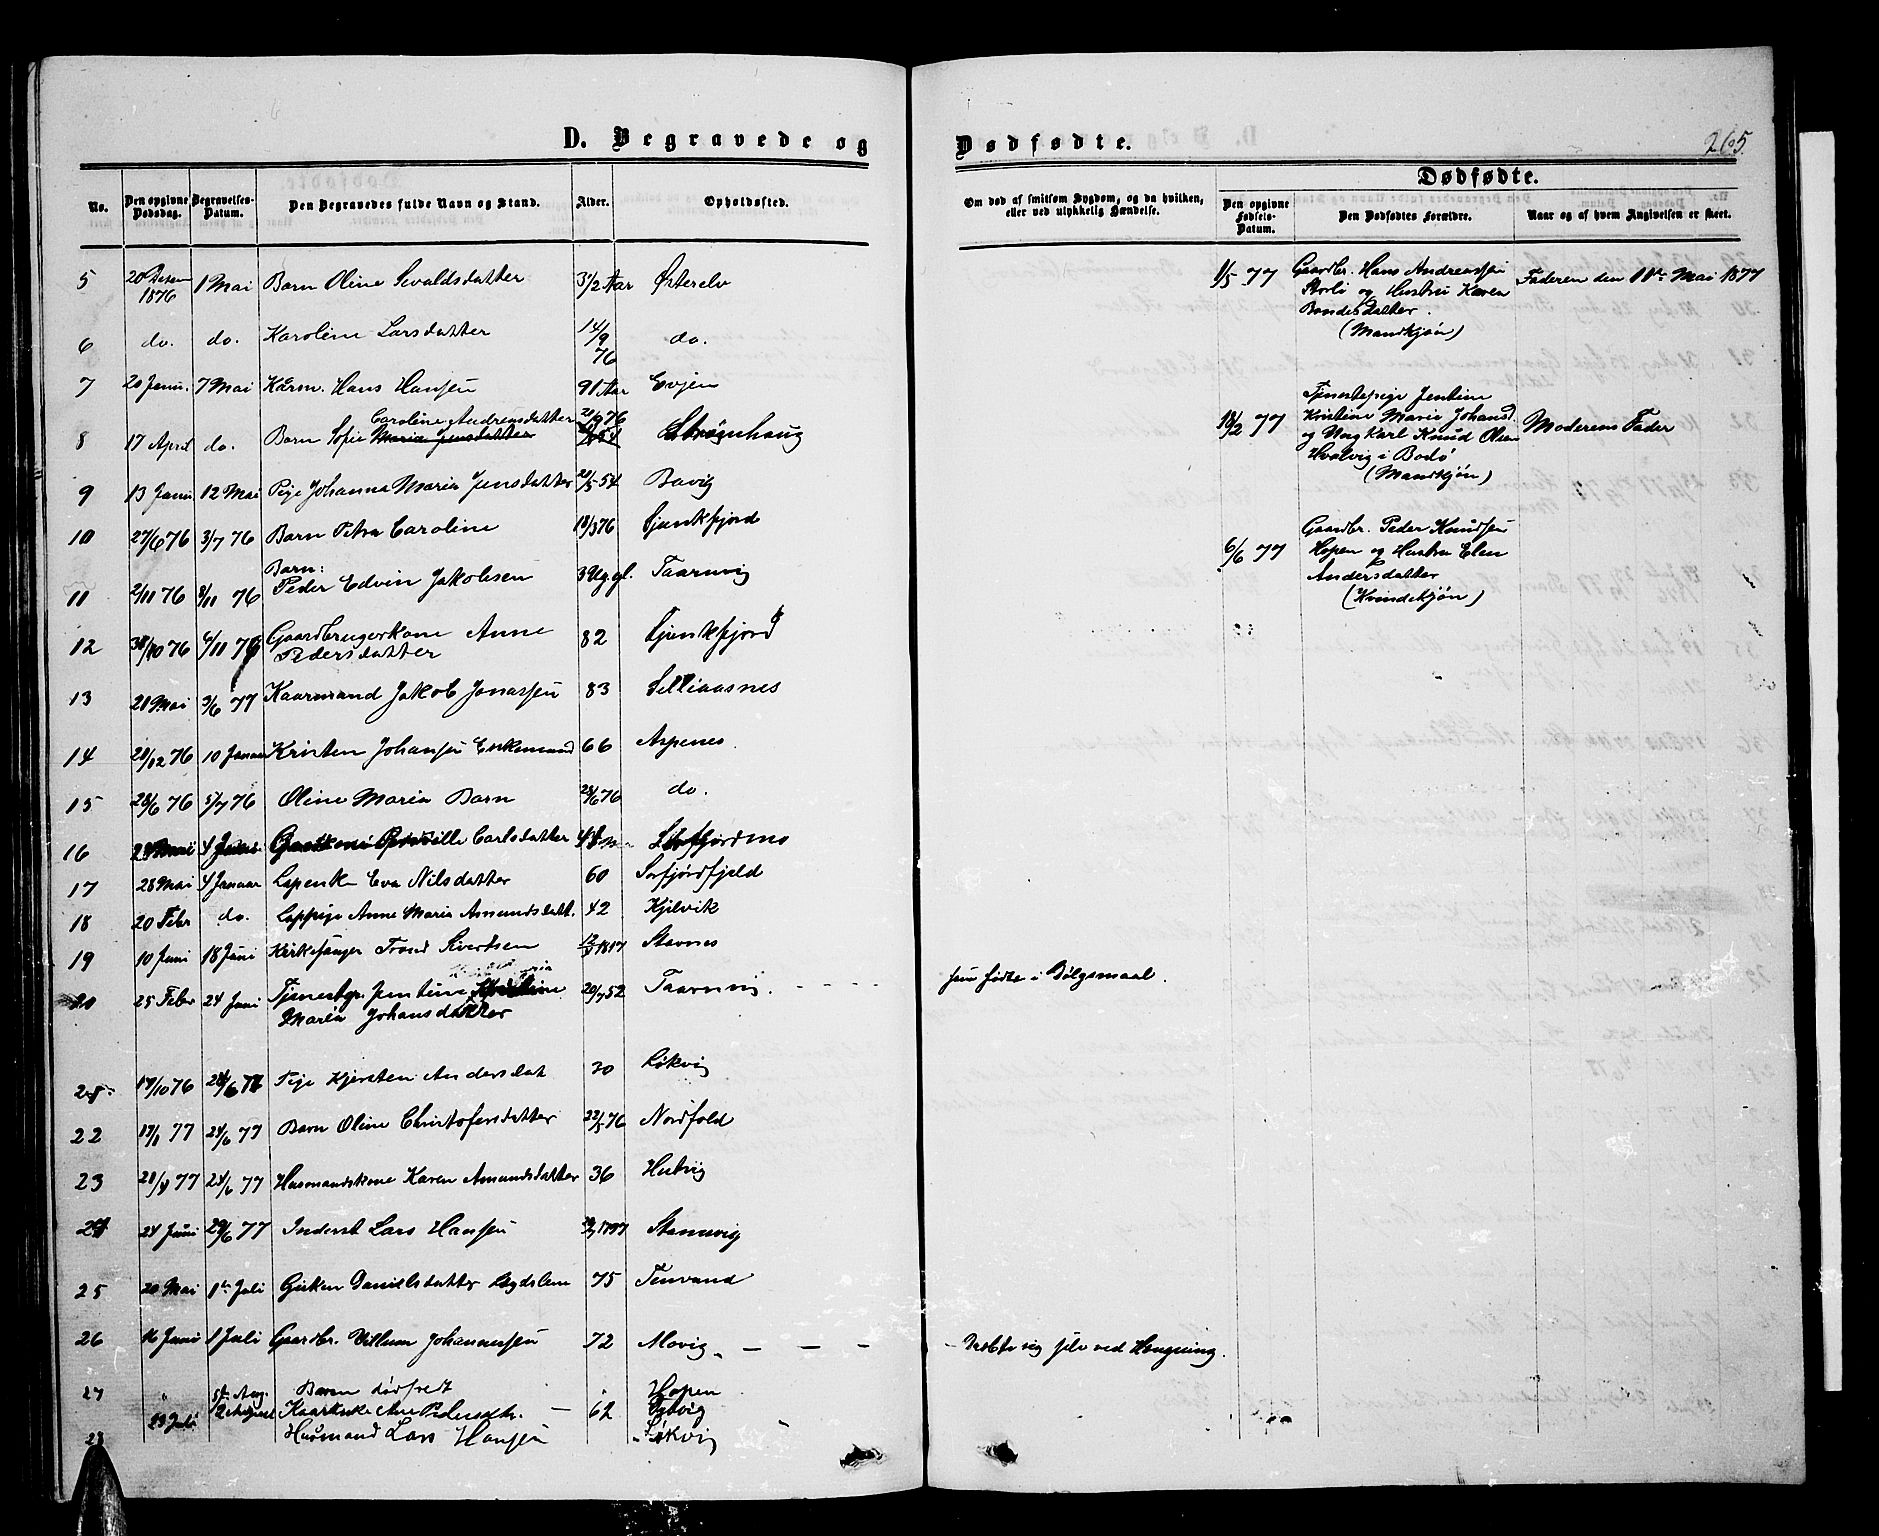 D. Begravede og
Dødfødte.
265.
No.
Den opgivne Dødsdag.
Begravelses-Datum.
Den Begravedes fulde Navn og Stand.
Alder.
Opholdssted.
Om død af smitsom Sygdom, og da hvilken, eller ved ulykkelig Hændelse.
Dødfødte.
Den opgivne Fødsels-Datum.
Den Dødfødtes Forældre.
Naar og af hvem Angivelsen er skeet.
5 20 Desem 1876 1 Mai Barn Oline Sivaldsdatter 3 1/2 Aar Østerelv
6 do. do. Karoline Larsdatter 14/9 76 do.
7 20 Janu. 7 Mai Kårm. Hans Hansen 91 Aar Evjen
8 17 April do. Barn Sofie Caroline Andreasdatter Strømhaug
9 13 Janu. 12 Mai Pige Johanna Maria Jensdatter 20/5 54 Bavig
10 27/6 76 3/7 76 Barn Petra Caroline 18/3 76 Tjunkfjord
11 2/11 76 8/11 76 Barn:
Peder Edvin Jakobsen 3 Ug. gl. Taarnvig
12 30/10 76 6/11 76 Gaardbrugerkone Anne
Pedersdatter 82 Tjunkfjord
13 21 Mai 3/6 77 Kaarmand Jakob Jonassen 83 Selliaasnes
14 28/12 76 10 Januar Kristen Johansen Enkemand 66 Aspenes
15 28/6 76 5/7 76 Oline Maria Barn 23/6 76 do.
16 4 Carlsdatter Sørfjordmo
17 28 Mai 4 Januar Lapenk. Eva Nilsdatter 60 Sørfjordfjeld
18 20 Febr do. Lappige Anne Maria Amundsdatt. 42 Kjelvik
19 10 Juni 18 Juni Kirkesanger Trond Sivertsen 1817 Stavnes
20 25 Febr 24 Juni Tjenestpge Jentine
Maria Johansdatter 20/7 52 Taarnvig.
hun fødte i Dølgsmaal.
17/10 76 24/6 77 Pige Kjersten Andersdat 30 Løkvig
22 17/1 77 24/6 77 Barn Oline Christofersdatter 22/5 76 Nordfold
23 28/4 77 24/6 77 Husmandskone Karen Amundsdatter 36 Helvig
24 24 Juni 29/6 77 Inderst Lars Hansen 1797 Stamsvig
25 20 Mai 1te Juli Gjerken Danielsdatter Lægdslem 75 Tenvand
26 16 Juni 1 Juli Gaardbr. Villum Johannessen 72 Movig
Dræbte sig selv ved Hængning.
27 " 5te Aug. Barn dødfødt " Hopen
2 August Kaarenke Ane Pedersdtr. 62
28 29 Juli Husmand Lars Hansen Løkvig
1/5 77 Gaardbr. Hans Andreassen
Storli og Hustru Karen
Bendesdatter.
(Mandkjøn)
Faderen den 11te Mai 1877
18/2 77 Tjenestepige Jentine
Kristine Marie Johansd.
og Ung Karl Knud Olsen
Hvalvig i Bodø
(Mandkjøn)
Moderens Fader
6/6 77 Gaardbr. Peder Knudsen
Hopen og Hustru Elen
Andersdatter
(Kvindekjøn)